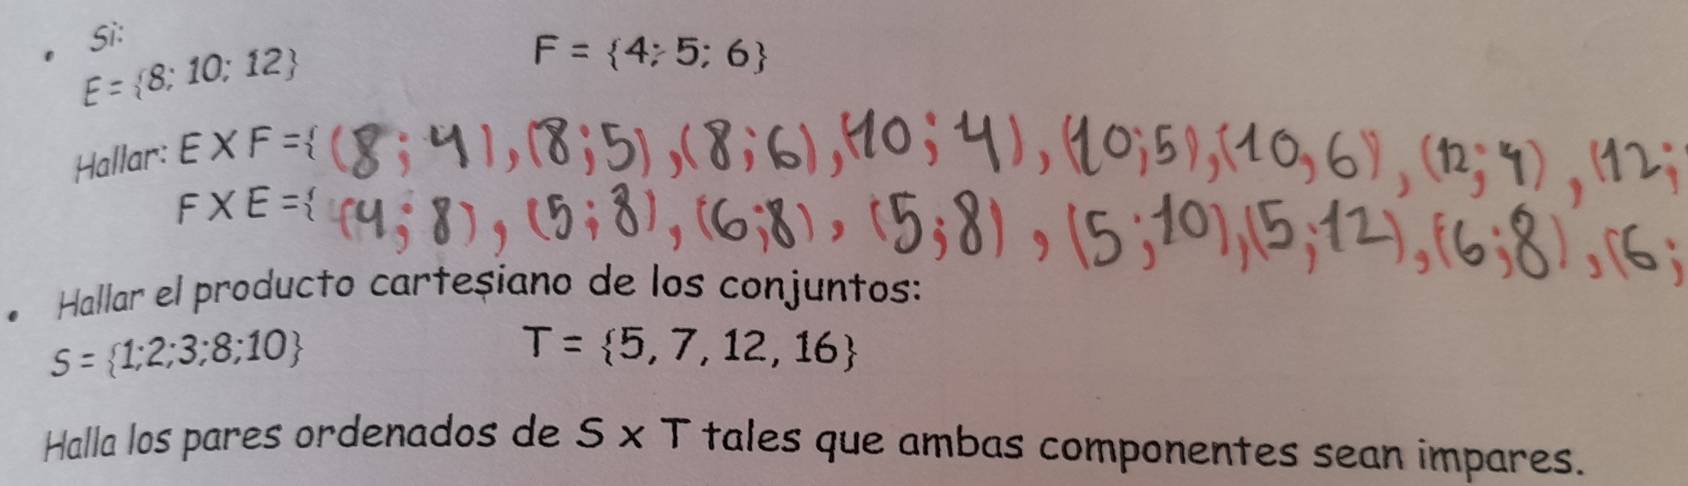 • Si:
E = {8; 10; 12} F = {4; 5; 6}
Hallar: E X F = { (8; 4), (8; 5), (8; 6), (10; 4), (10; 5), (10, 6), (12; 4), (12;
F X E = { (4; 8), (5; 8), (6; 8), (5; 8), (5; 10), (5; 12), (6; 8), (6;
• Hallar el producto cartesiano de los conjuntos:
S = {1;2;3;8;10} T = {5, 7, 12, 16}
Halla los pares ordenados de S x T tales que ambas componentes sean impares.